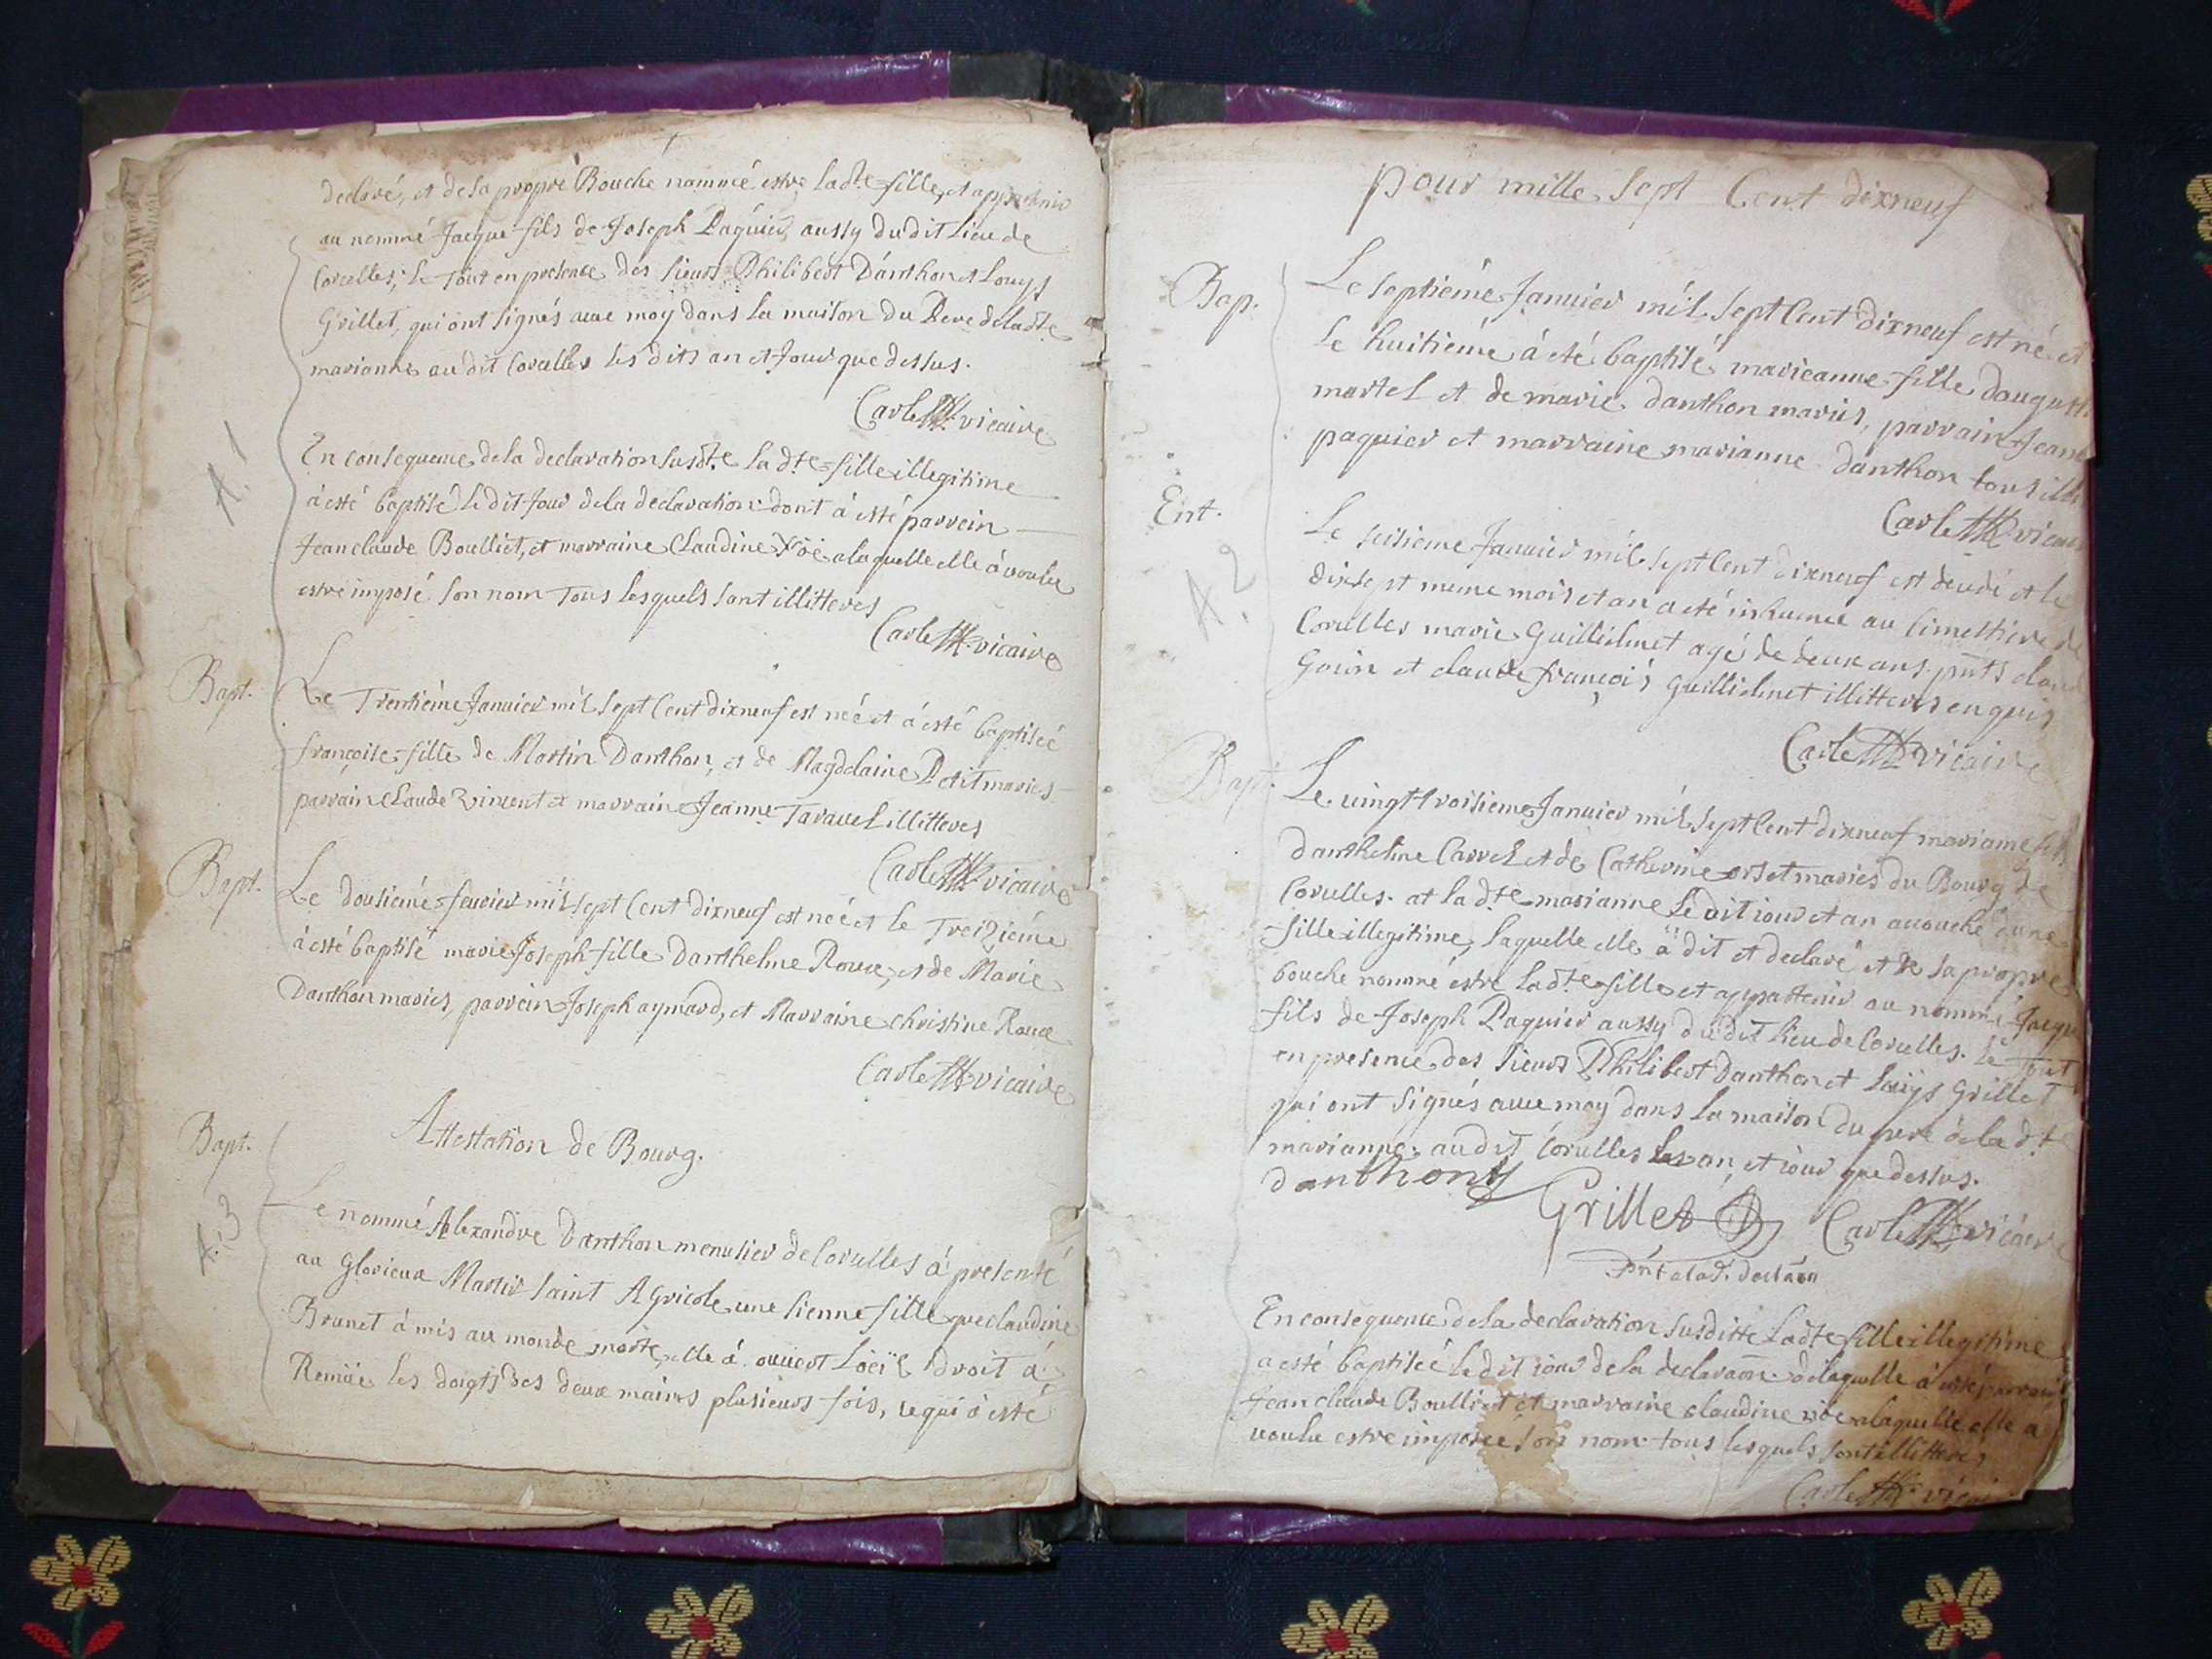 declaré, et de sa propre Bouche nommé estre lad.te fille, et appartenir
au nommé Jacque fils de Joseph Paquier aussy du dit Lieu de
Corcelles; le Tout en presence des sieurs Philibert Danthon et Louys
Grillet, qui ont signés avec moy dans la maison du Pere de lad.te
marianne au dit Corcelles les dits an et Jour que dessus.
Carle vicaire
A. 1
En consequence de la declaration susd.te la d.te fille illegitime
à esté baptisé le dit Jour de la declaration dont à esté parrein
Jean claude Boulliet, et marraine Claudine a laquelle elle à voulu
estre imposé son nom Tous lesquels sont illitteres
Carle vicaire
Bapt.
Le Trentiéme Januier mil sept Cent dixneuf est neé et à esté baptiseé
françoise fille de Martin Danthon, et de Magdelaine Petit mariés
parrain Claude Vincent et marraine Jeanne Taravel illitteres
Carle vicaire
Bapt.
Le dousiéme feurier mil sept Cent dixneuf est neé et le Treiziéme
à esté baptisé marie Joseph fille Danthelme Roux, et de Marie
Danthon mariés, parrein Joseph aymard, et Marraine christine Roux
Carle vicaire
Attestation de Bourg.
Bapt.
A. 3
Le nommé Alexandre Danthon menusier de Corcelles à presenté
au glorieux Martir saint AGricole une sienne fille que claudine
Brunet à mis au monde morte, elle à ouuert Loëil droit à
Remüé les doigts des deux mains plusieurs fois, ce qui à esté
pour mille sept Cent dixneuf
Bap.
Le septiéme Januier mil sept Cent dixneuf est né et
le huitiéme à eté baptisé marieanne fille daugust
martel et de marie danthon mariés, parrain Jean
paquier et marraine marianne danthon tous ille
Carle vicaire
Ent.
A. 2
Le seisieme Januier mil sept Cent dixneuf est decedé et le
dixsept meme mois et an a eté inhumée au Cimettiere de
Corcelles marie Guillielmet agé de deux ans. pnts claude
Goiin et claude françois guillielmet illitteres enquis
Carle vicaire
Bapt.
Le uingt troisieme Januier mil sept Cent dixneuf marianne fille
danthelme Carrel et de Catherine orset mariés du Bourg de
Corcelles. at la d.te marianne le dit iour et an accouché d'une
fille illegitime, laquelle elle à dit et declaré et de sa propre
bouche nommé estre lad.te fille et appartenir au nommé Jacque
fils de Joseph Paquier aussy du dit lieu de Corcelles. le Tout
en presence des sieurs Philibert danthon et Loüys Grillet
qui ont signés avec moy dans la maison du pere de la d.te
marianne. au dit Corcelles les an et iour que dessus.
danthony Grillet Carle vicaire
En consequence de la declaration susditte lad.te fille illegitime
a esté baptiseé le dit iour de la declaraon. de laquelle à esté parrain
Jean claude Boulliet et marraine claudine a laquelle elle a
voulu estre imposeé son nom tous lesquels sont illitteres
Carle vicaire